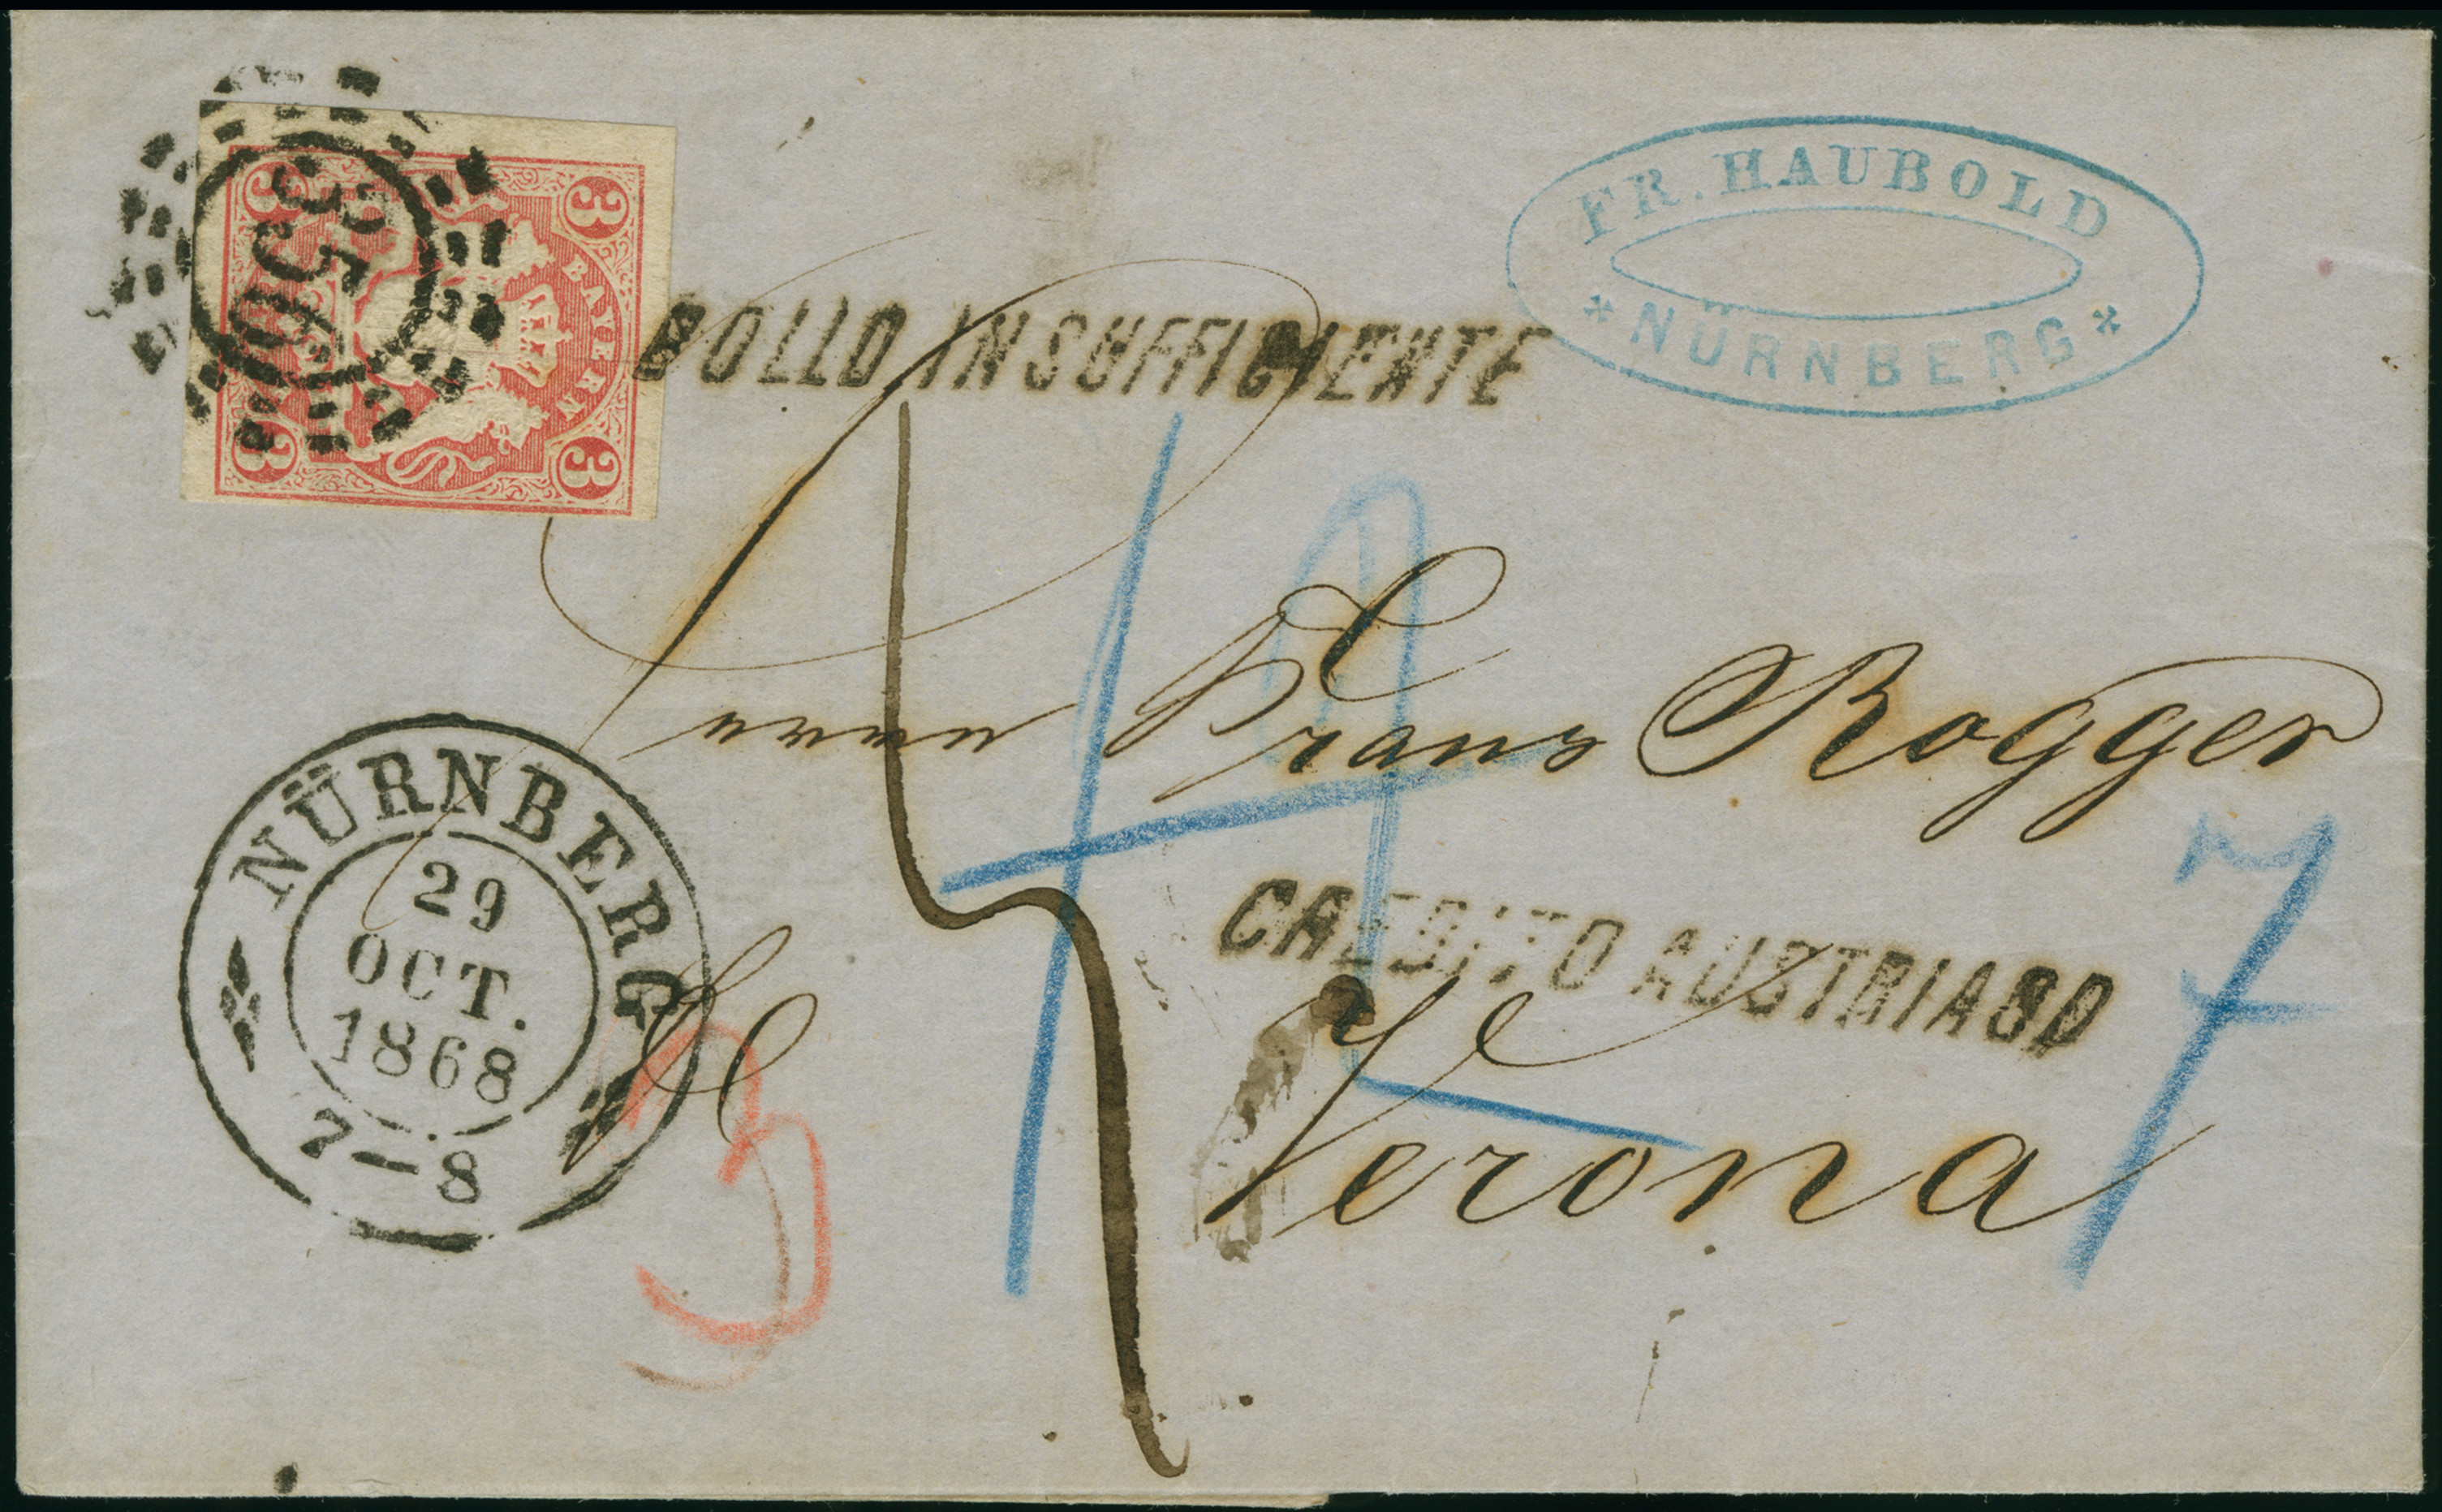 350
3 3
BAYERN
3 3
FR. HAUBOLD
* NÜRNBERG *
BOLLO INSUFFICIENTE
Herrn Franz Rogger
NÜRNBERG
29
OCT.
1868
7-8
CREDITO AUSTRIACO
Verona
3
7